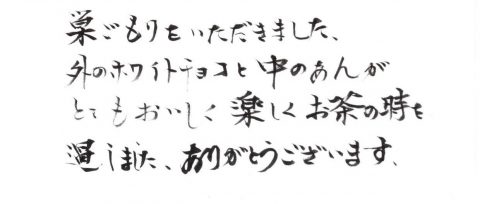 巣ごもりをいただきました、
外のホワイトチョコと中のあんが
とてもおいしく楽しくお茶の時を
過しました、ありがとうございます、